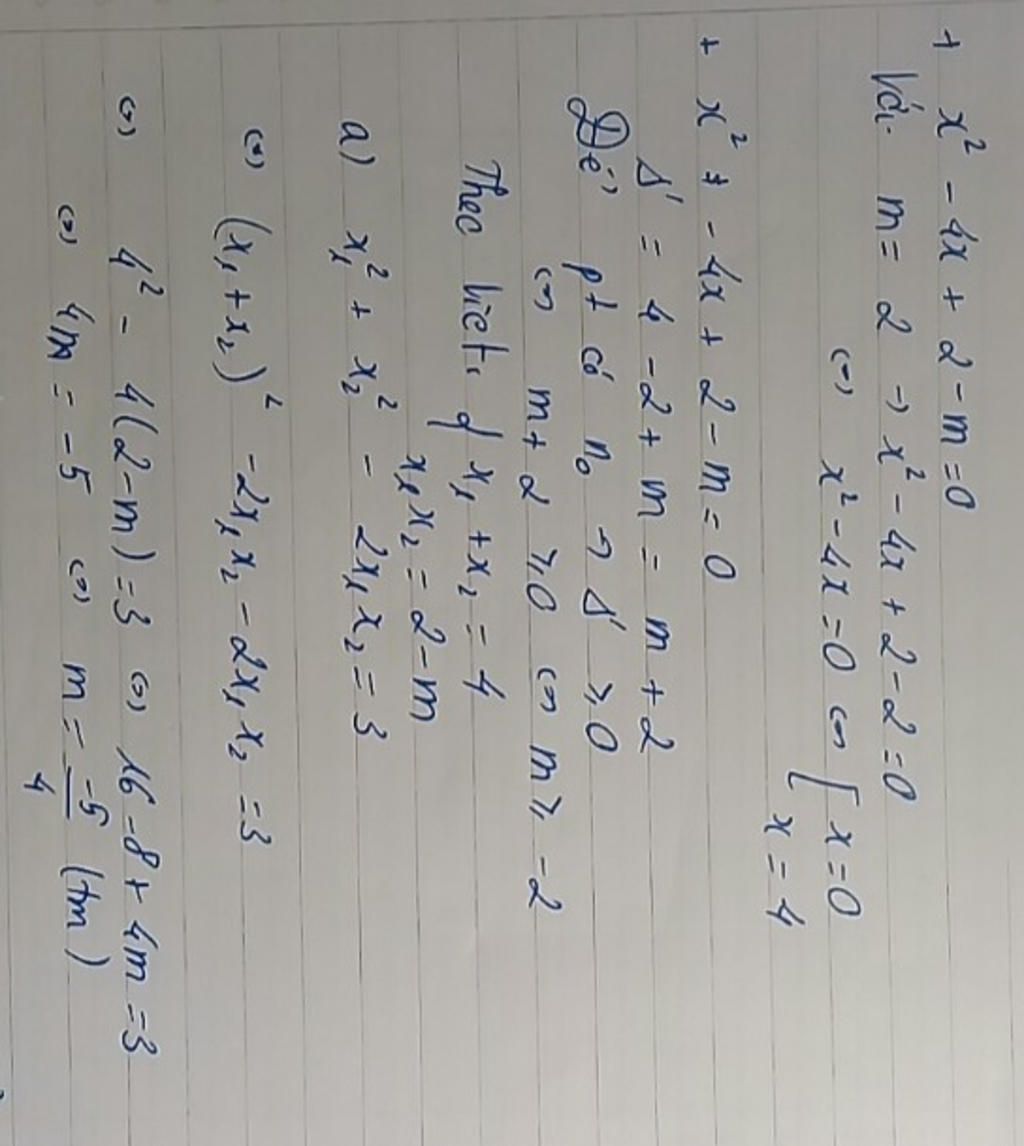 + x² - 4x + 2 - m = 0
Với m = 2 → x² - 4x + 2 - 2 = 0
(=) x² - 4x = 0 (=) [ x = 0
x = 4
+ x² - 4x + 2 - m = 0
Δ' = 4 - 2 + m = m + 2
Để pt có n₀ → Δ' ≥ 0
(=) m + 2 ≥ 0 (=) m ≥ -2
Theo Viet: { x₁ + x₂ = 4
x₁x₂ = 2 - m
a) x₁² + x₂² - 2x₁x₂ = 3
(=) (x₁ + x₂)² - 2x₁x₂ - 2x₁x₂ = 3
(=) 4² - 4(2 - m) = 3 (=) 16 - 8 + 4m = 3
(=) 4m = -5 (=) m = -5/4 (tm)